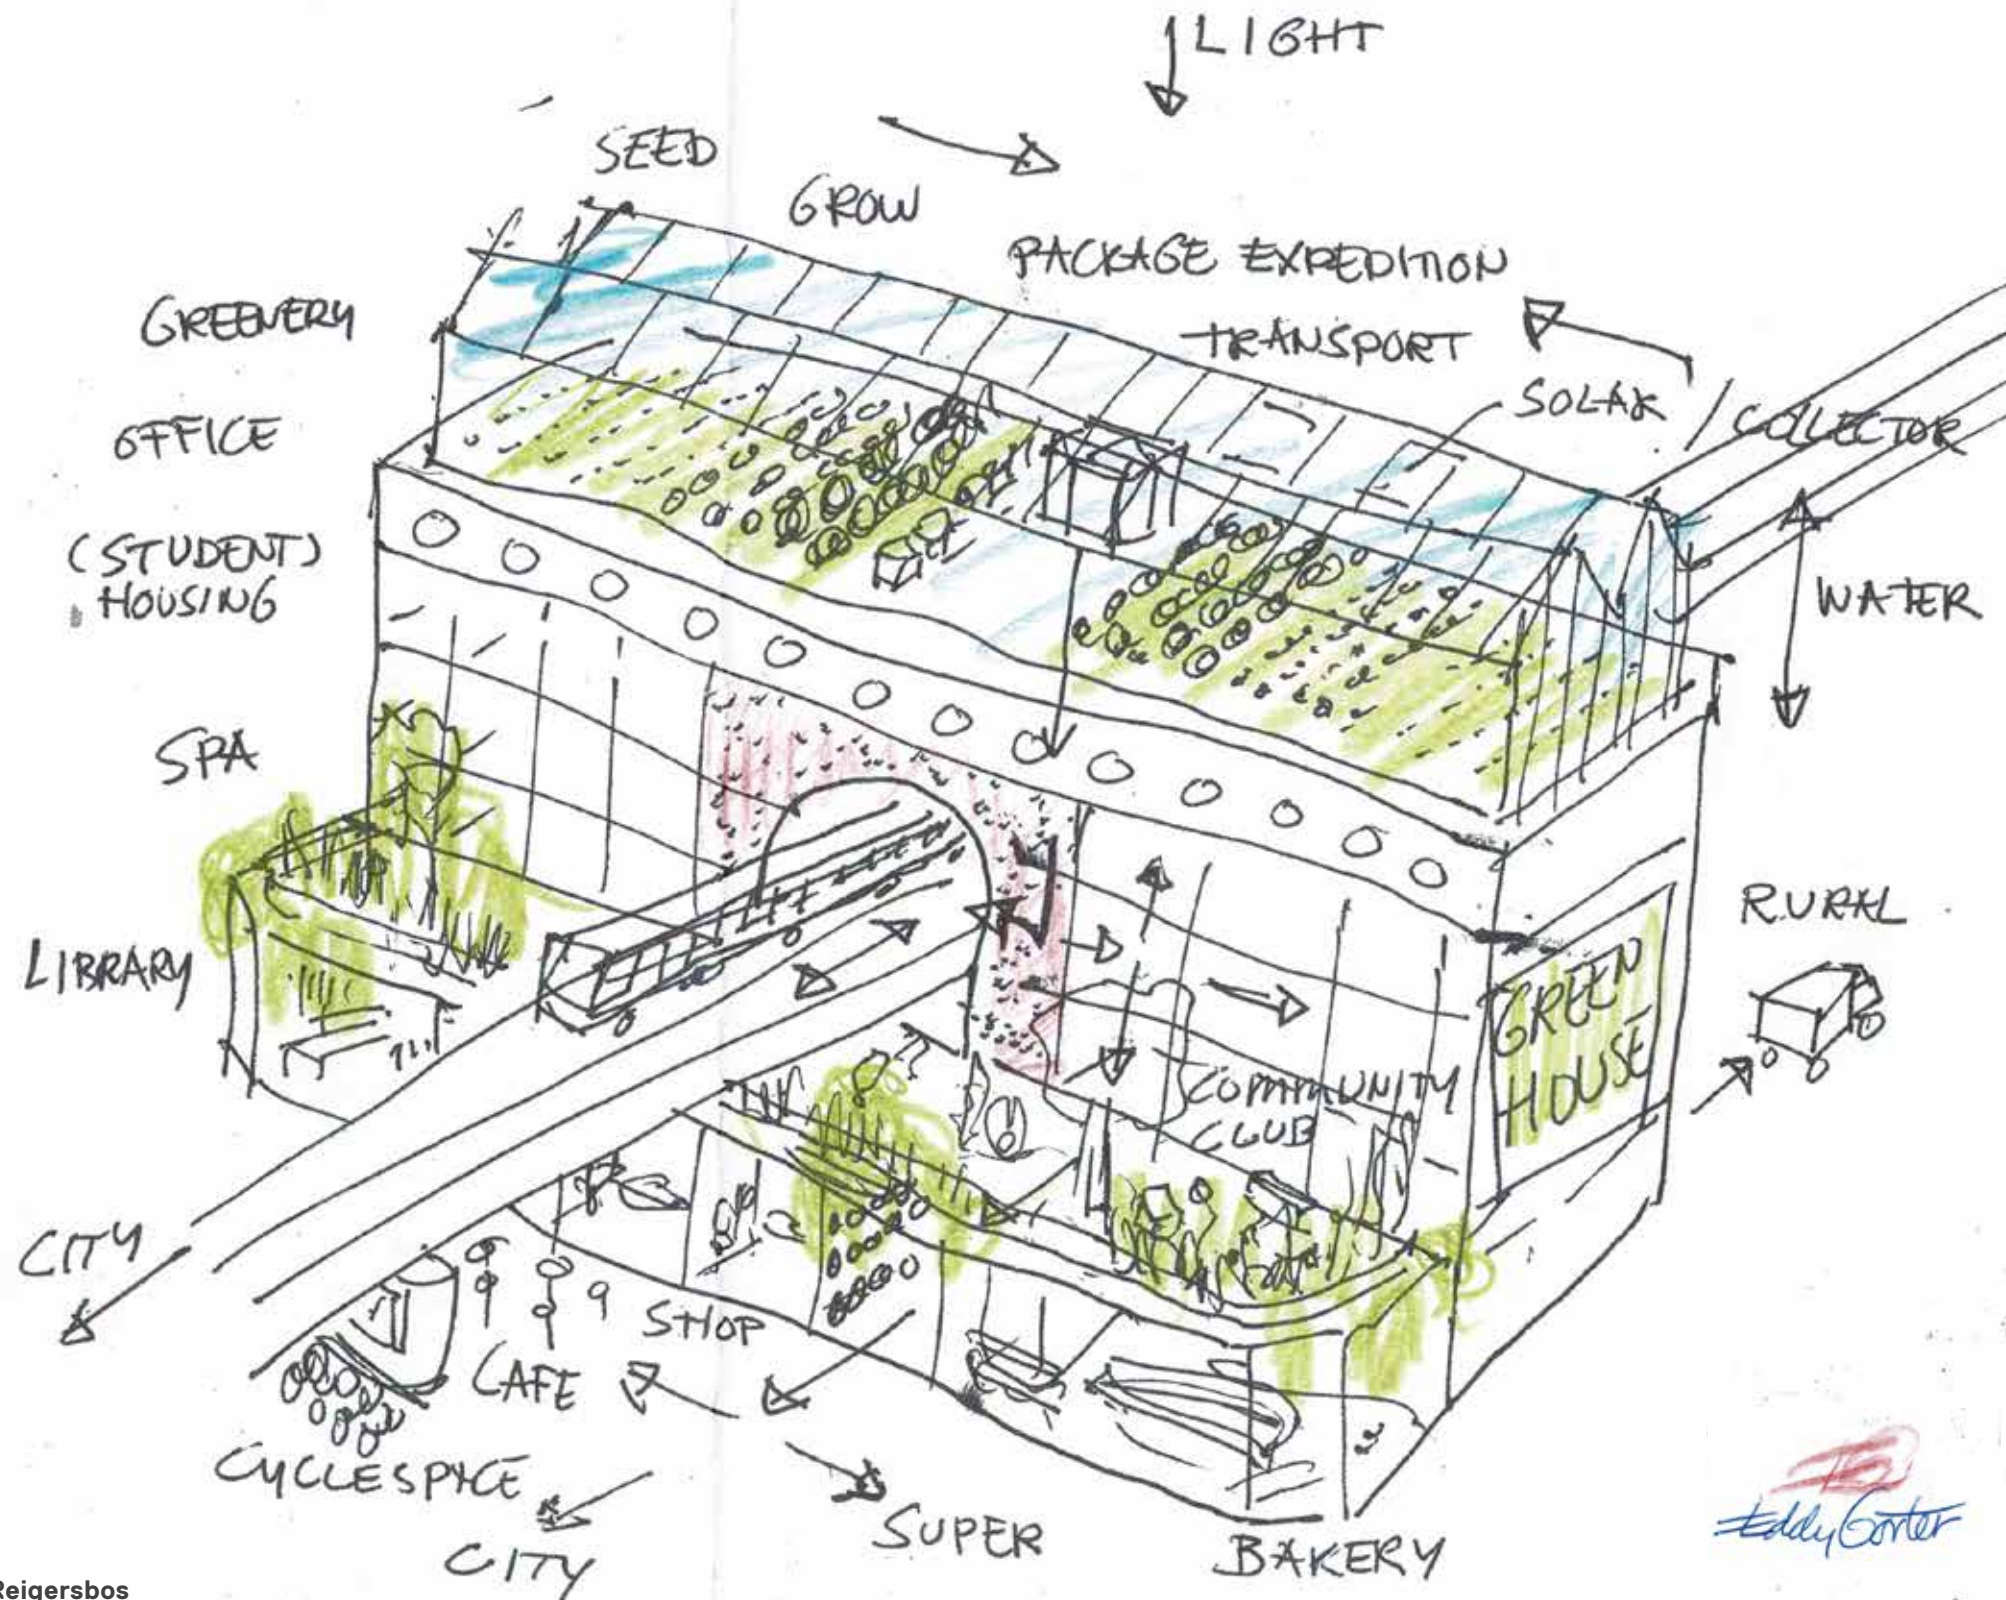 LIGHT
SEED
GROW
PACKAGE EXPEDITION
TRANSPORT
SOLAR / COLLECTOR
GREENERY
OFFICE
(STUDENT)
HOUSING
WATER
SPA
LIBRARY
RURAL
GREEN
HOUSE
COMMUNITY
CLUB
CITY
SHOP
CAFE
CYCLESPACE
CITY
SUPER
BAKERY
Eddy Gorter
Reigersbos